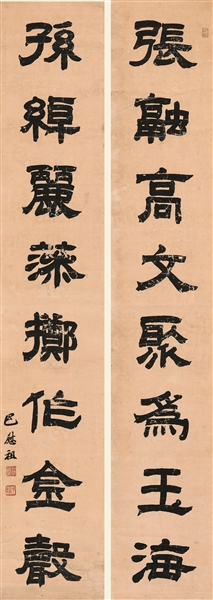 張融高文聚為玉海
孫綽麗藻擲作金聲
巴慰祖